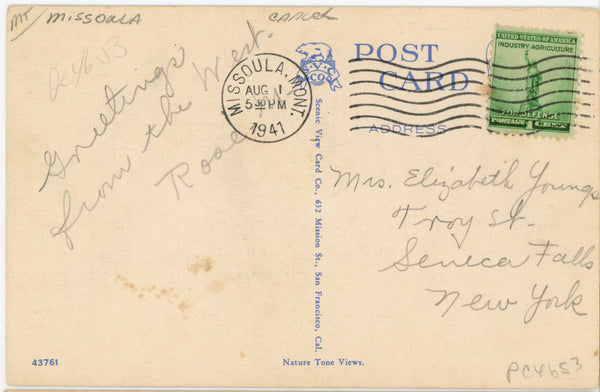 MT MISSOULA
CANCL
PC4653
Greetings
from the West.
Road
MISSOULA, MONT.
AUG 1
5 30 PM
1941
S.V.C.
CO.
POST
CARD
ADDRESS
UNITED STATES OF AMERICA
INDUSTRY·AGRICULTURE
FOR DEFENSE
POSTAGE 1¢
Scenic View Card Co., 632 Mission St., San Francisco, Cal.
Mrs. Elizabeth Youngs
Troy St.
Seneca Falls
New York
43761
Nature Tone Views.
PC4653